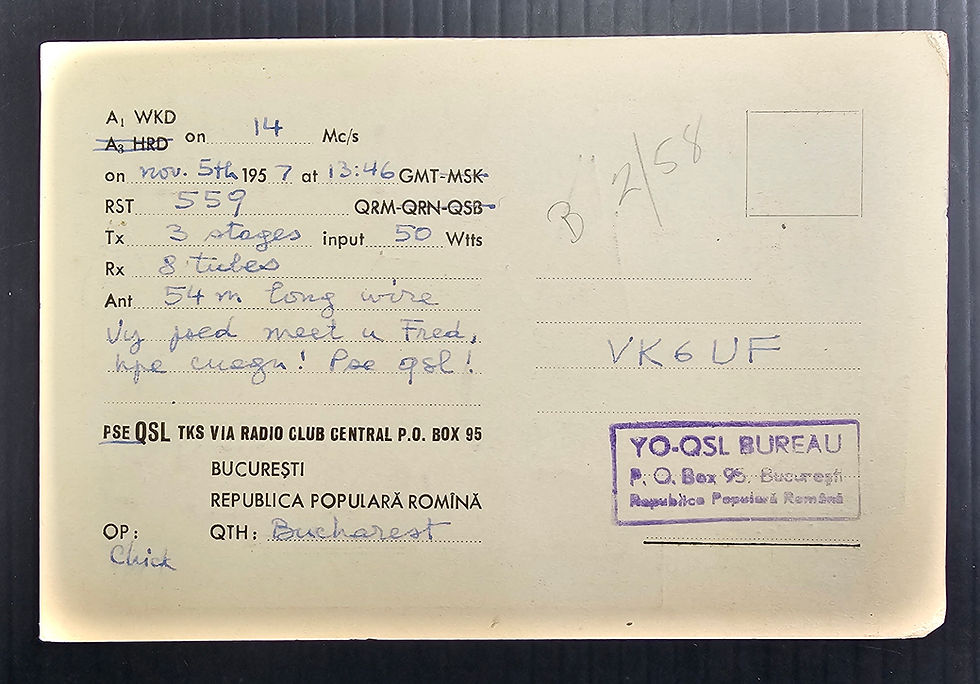 A₁ WKD
A₃ HRD on 14 Mc/s
on nov. 5th 1957 at 13:46 GMT-MSK
RST 559 QRM-QRN-QSB
Tx 3 stages input 50 Wtts
Rx 8 tubes
Ant 54 m long wire
Vy meet u Fred,
hpe cuagn! Pse qsl!
PSE QSL TKS VIA RADIO CLUB CENTRAL P.O. BOX 95
BUCUREȘTI
REPUBLICA POPULARĂ ROMÎNĂ
OP: QTH: Bucharest
Chick
B 2/58
VK6UF
YO-QSL BUREAU
P. O. Box 95. București
Republica Populară Romînă